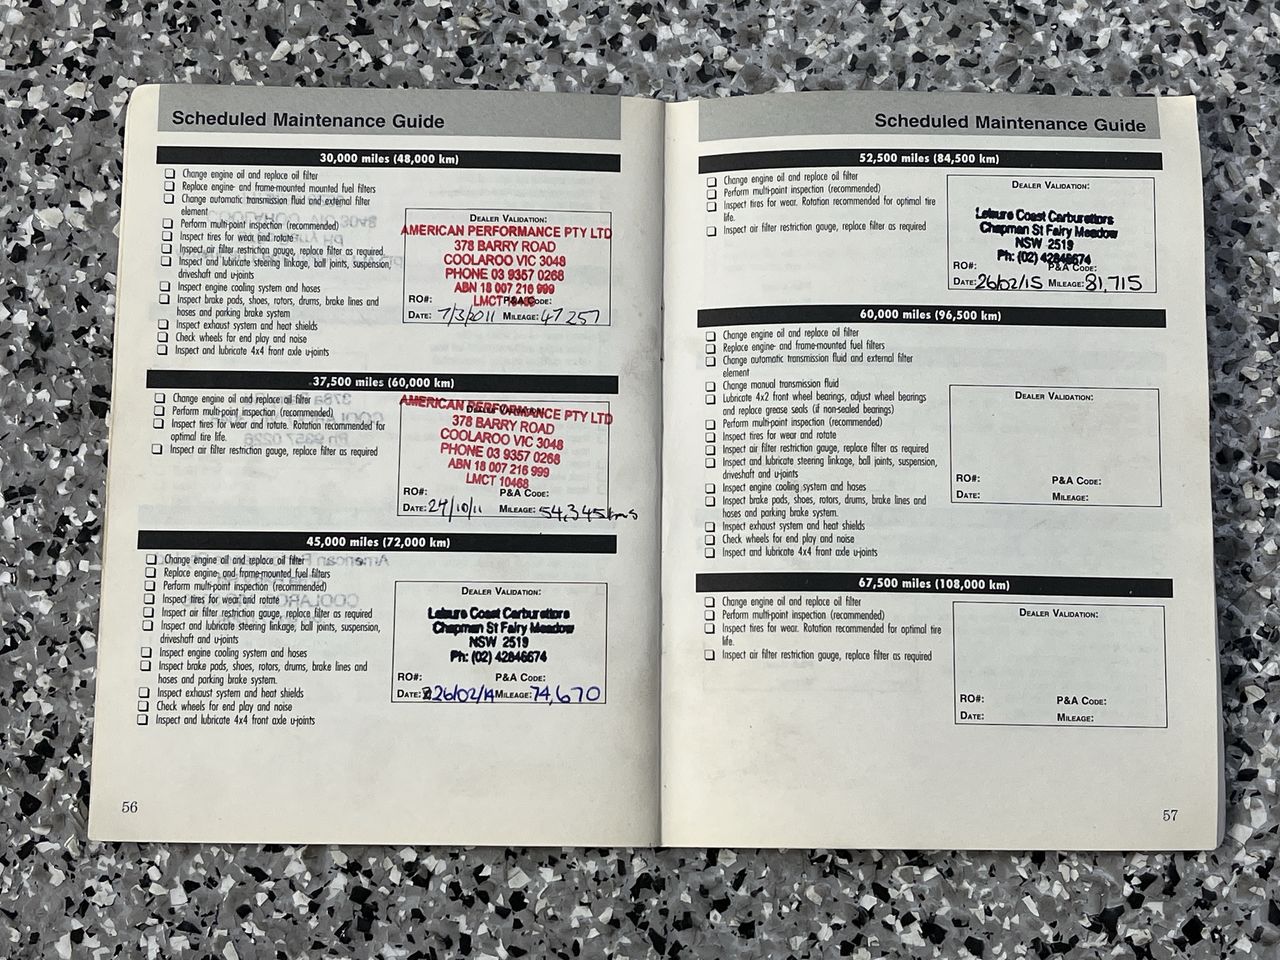 Scheduled Maintenance Guide
30,000 miles (48,000 km)
❏ Change engine oil and replace oil filter
❏ Replace engine- and frame-mounted mounted fuel filters
❏ Change automatic transmission fluid and external filter
element
❏ Perform multi-point inspection (recommended)
❏ Inspect tires for wear and rotate
❏ Inspect air filter restriction gauge, replace filter as required.
❏ Inspect and lubricate steering linkage, ball joints, suspension,
driveshaft and u-joints
❏ Inspect engine cooling system and hoses
❏ Inspect brake pads, shoes, rotors, drums, brake lines and
hoses and parking brake system
❏ Inspect exhaust system and heat shields
❏ Check wheels for end play and noise
❏ Inspect and lubricate 4x4 front axle u-joints
DEALER VALIDATION:
AMERICAN PERFORMANCE PTY LTD
378 BARRY ROAD
COOLAROO VIC 3048
PHONE 03 9357 0268
ABN 18 007 216 999
LMCT 10468
RO#: P&A CODE:
DATE: 7/3/2011 MILEAGE: 47257
37,500 miles (60,000 km)
❏ Change engine oil and replace oil filter
❏ Perform multi-point inspection (recommended)
❏ Inspect tires for wear and rotate. Rotation recommended for
optimal tire life.
❏ Inspect air filter restriction gauge, replace filter as required
DEALER VALIDATION:
AMERICAN PERFORMANCE PTY LTD
378 BARRY ROAD
COOLAROO VIC 3048
PHONE 03 9357 0268
ABN 18 007 216 999
LMCT 10468
RO#: P&A CODE:
DATE: 27/10/11 MILEAGE: 54,345kms
45,000 miles (72,000 km)
❏ Change engine oil and replace oil filter
❏ Replace engine- and frame-mounted fuel filters
❏ Perform multi-point inspection (recommended)
❏ Inspect tires for wear and rotate
❏ Inspect air filter restriction gauge, replace filter as required
❏ Inspect and lubricate steering linkage, ball joints, suspension,
driveshaft and u-joints
❏ Inspect engine cooling system and hoses
❏ Inspect brake pads, shoes, rotors, drums, brake lines and
hoses and parking brake system.
❏ Inspect exhaust system and heat shields
❏ Check wheels for end play and noise
❏ Inspect and lubricate 4x4 front axle u-joints
DEALER VALIDATION:
Leisure Coast Carburettors
Chapman St Fairy Meadow
NSW 2519
Ph: (02) 42846674
RO#: P&A CODE:
DATE: 26/02/14 MILEAGE: 74,670
56
Scheduled Maintenance Guide
52,500 miles (84,500 km)
❏ Change engine oil and replace oil filter
❏ Perform multi-point inspection (recommended)
❏ Inspect tires for wear. Rotation recommended for optimal tire
life.
❏ Inspect air filter restriction gauge, replace filter as required
DEALER VALIDATION:
Leisure Coast Carburettors
Chapman St Fairy Meadow
NSW 2519
Ph: (02) 42846674
RO#: P&A CODE:
DATE: 26/02/15 MILEAGE: 81,715
60,000 miles (96,500 km)
❏ Change engine oil and replace oil filter
❏ Replace engine- and frame-mounted fuel filters
❏ Change automatic transmission fluid and external filter
element
❏ Change manual transmission fluid
❏ Lubricate 4x2 front wheel bearings, adjust wheel bearings
and replace grease seals (if non-sealed bearings)
❏ Perform multi-point inspection (recommended)
❏ Inspect tires for wear and rotate
❏ Inspect air filter restriction gauge, replace filter as required
❏ Inspect and lubricate steering linkage, ball joints, suspension,
driveshaft and u-joints
❏ Inspect engine cooling system and hoses
❏ Inspect brake pads, shoes, rotors, drums, brake lines and
hoses and parking brake system.
❏ Inspect exhaust system and heat shields
❏ Check wheels for end play and noise
❏ Inspect and lubricate 4x4 front axle u-joints
DEALER VALIDATION:
RO#: P&A CODE:
DATE: MILEAGE:
67,500 miles (108,000 km)
❏ Change engine oil and replace oil filter
❏ Perform multi-point inspection (recommended)
❏ Inspect tires for wear. Rotation recommended for optimal tire
life.
❏ Inspect air filter restriction gauge, replace filter as required
DEALER VALIDATION:
RO#: P&A CODE:
DATE: MILEAGE:
57